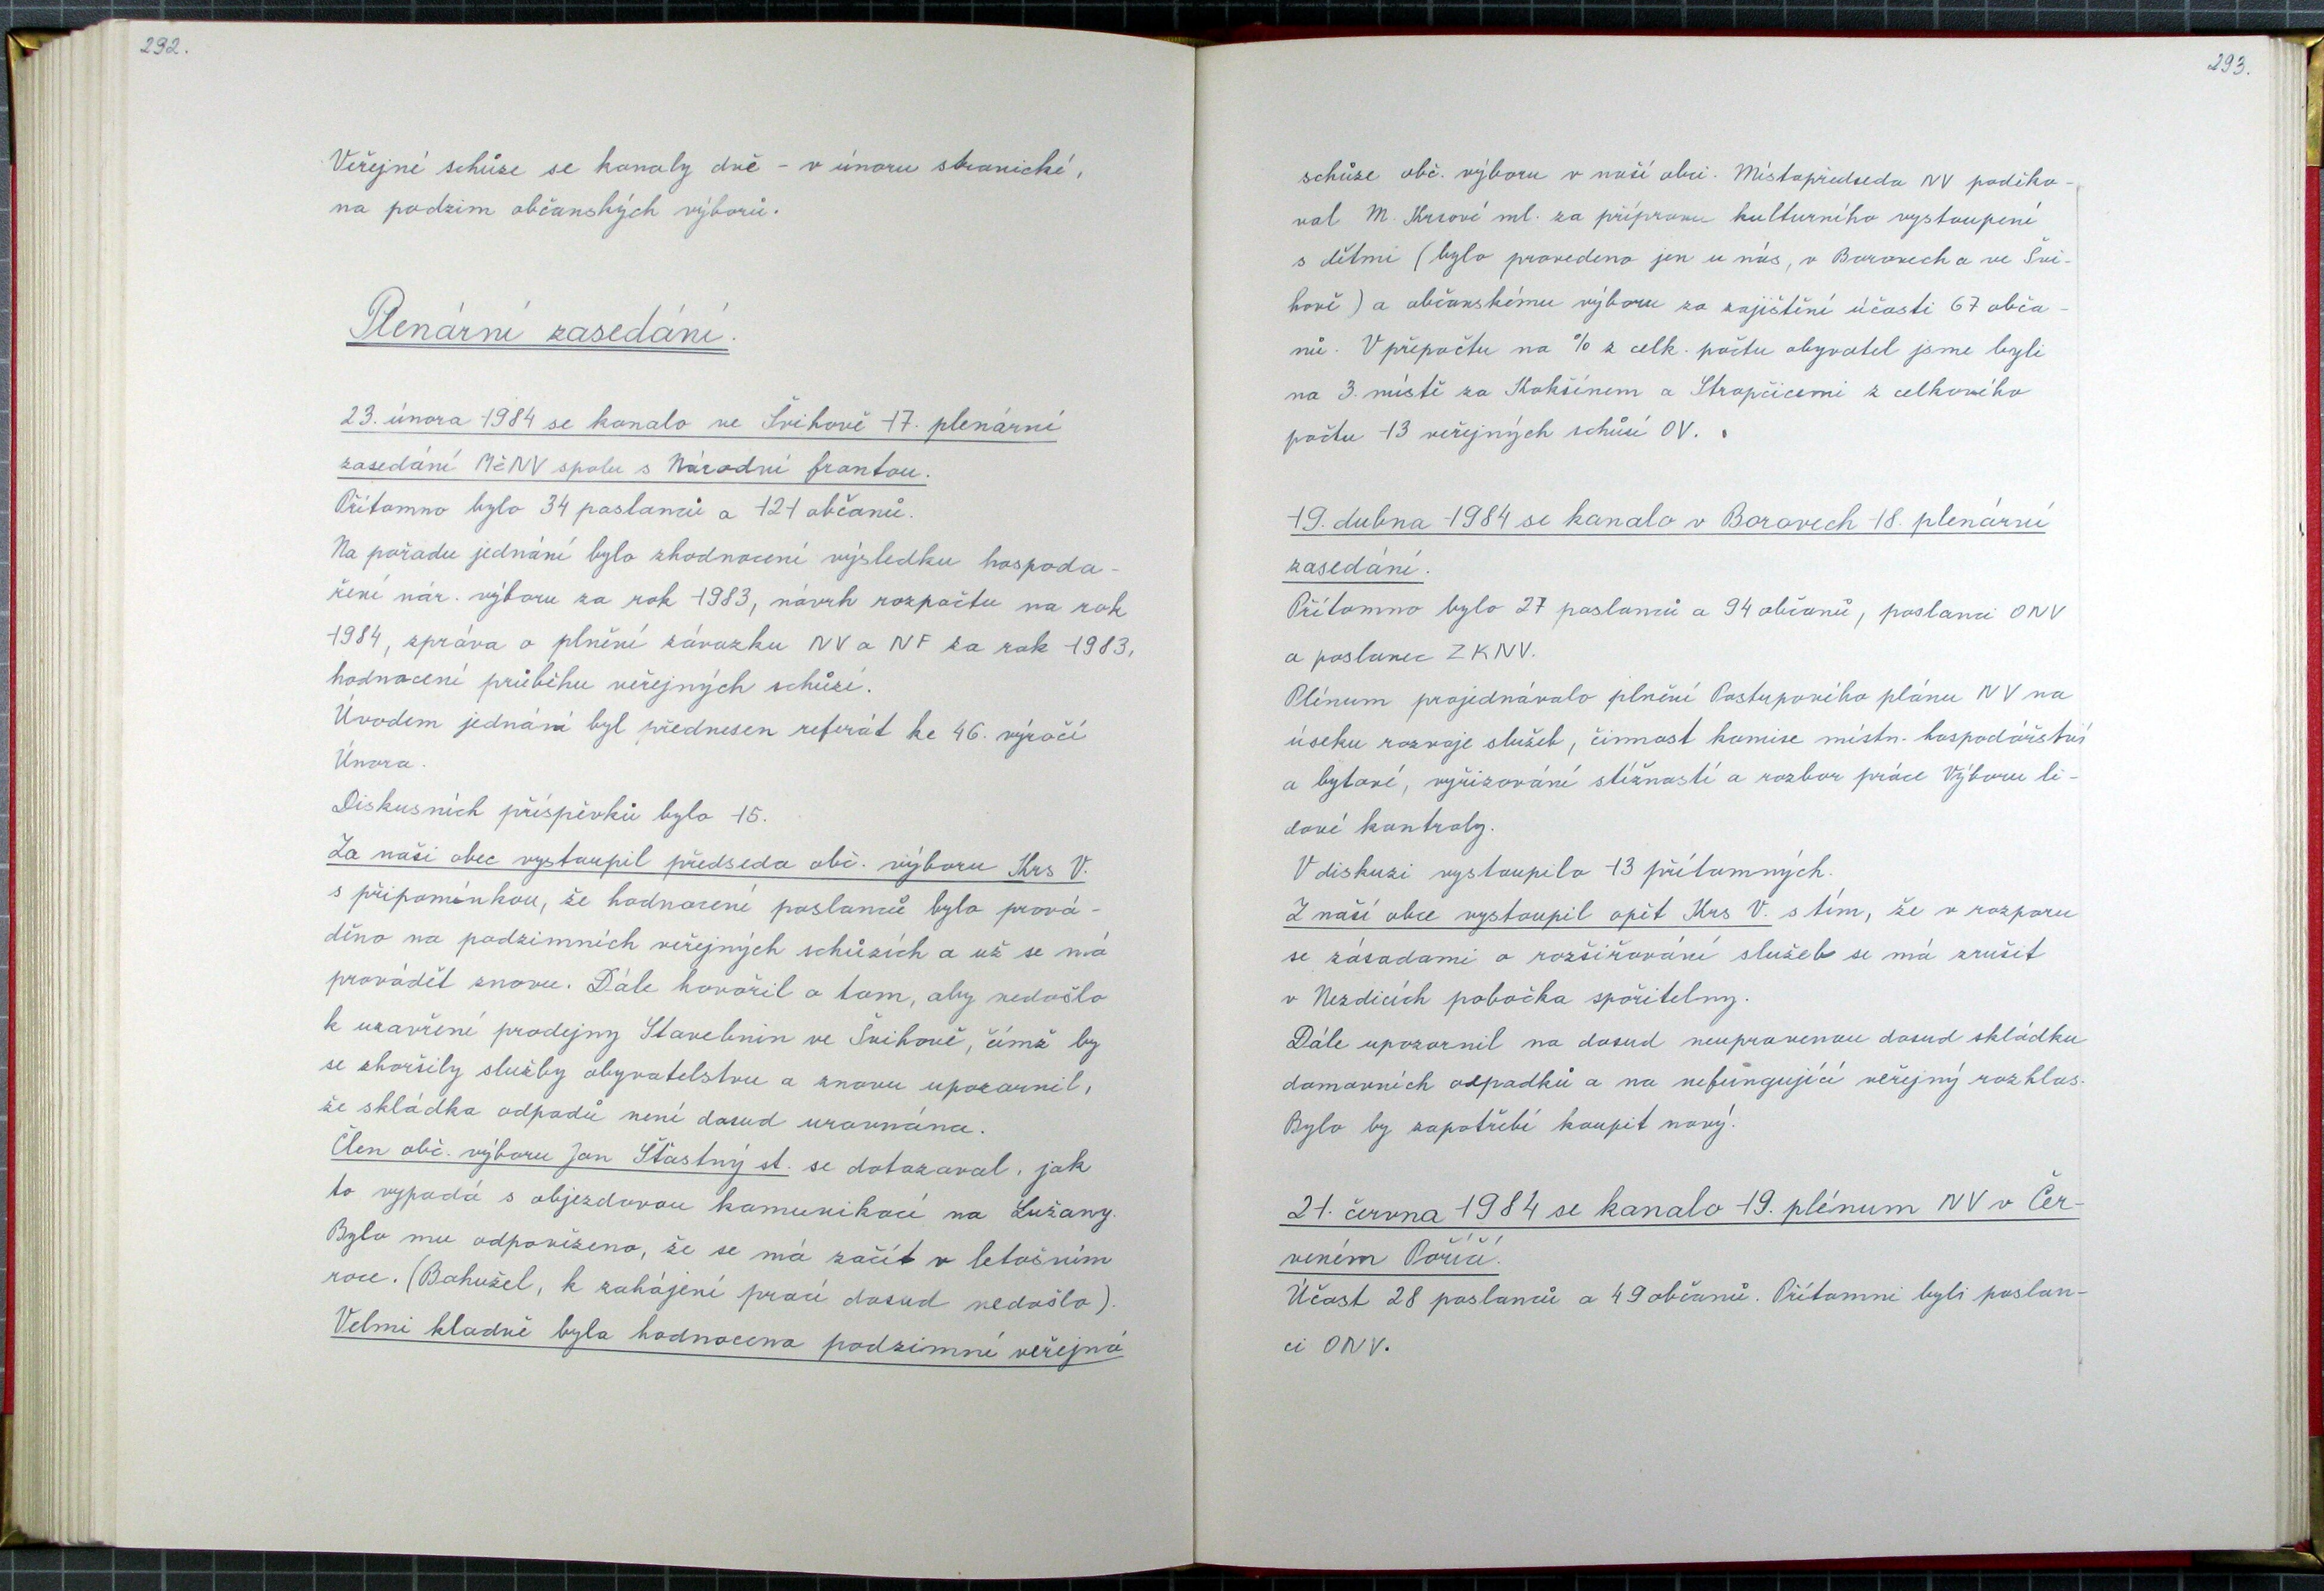 292.
Veřejné schůze se konaly dvě - v únoru stranické,
na podzim občanských výborů.
Plenární zasedání.
23. února 1984 se konalo ve Švihově 17. plenární
zasedání MěNV spolu s Národní frontou.
Přítomno bylo 34 poslanců a 121 občanů.
Na pořadu jednání bylo zhodnocení výsledku hospoda-
ření nár. výboru za rok 1983, návrh rozpočtu na rok
1984, zpráva o plnění závazku NV a NF za rok 1983,
hodnocení průběhu veřejných schůzí.
Úvodem jednání byl přednesen referát ke 46. výročí
Února.
Diskusních příspěvků bylo 15.
Za naši obec vystoupil předseda obč. výboru Krs V.
s připomínkou, že hodnocení poslanců bylo prová-
děno na podzimních veřejných schůzích a už se má
provádět znovu. Dále hovořil o tom, aby nedošlo
k uzavření prodejny Stavebnin ve Švihově, čímž by
se zhoršily služby obyvatelstvu a znovu upozornil,
že skládka odpadů není dosud urovnána.
Člen obč. výboru Jan Šťastný st. se dotazoval, jak
to vypadá s objezdovou komunikací na Lužany.
Bylo mu odpovězeno, že se má začít v letošním
roce. (Bohužel, k zahájení prací dosud nedošlo).
Velmi kladně byla hodnocena podzimní veřejná
293.
schůze obč. výboru v naší obci. Místopředseda NV poděko-
val M. Krsové ml. za přípravu kulturního vystoupení
s dětmi (bylo provedeno jen u nás, v Borovech a ve Švi-
hově) a občanskému výboru za zajištění účasti 67 obča-
nů. V přepočtu na % z celk. počtu obyvatel jsme byli
na 3. místě za Kokšínem a Stropčicemi z celkového
počtu 13 veřejných schůzí OV.
19. dubna 1984 se konalo v Borovech 18. plenární
zasedání.
Přítomno bylo 27 poslanců a 94 občanů, poslanci ONV
a poslanec ZKNV.
Plénum projednávalo plnění Postupového plánu NV na
úseku rozvoje služeb, činnost komise místn. hospodářství
a bytové, vyřizování stížností a rozbor práce Výboru li-
dové kontroly.
V diskuzi vystoupilo 13 přítomných.
Z naší obce vystoupil opět Krs V. s tím, že v rozporu
se zásadami o rozšiřování služeb se má zrušit
v Nezdicích pobočka spořitelny.
Dále upozornil na dosud neupravenou dosud skládku
domovních odpadků a na nefungující veřejný rozhlas.
Bylo by zapotřebí koupit nový.
21. června 1984 se konalo 19. plénum NV v Čer-
veném Poříčí.
Účast 28 poslanců a 49 občanů. Přítomni byli poslan-
ci ONV.